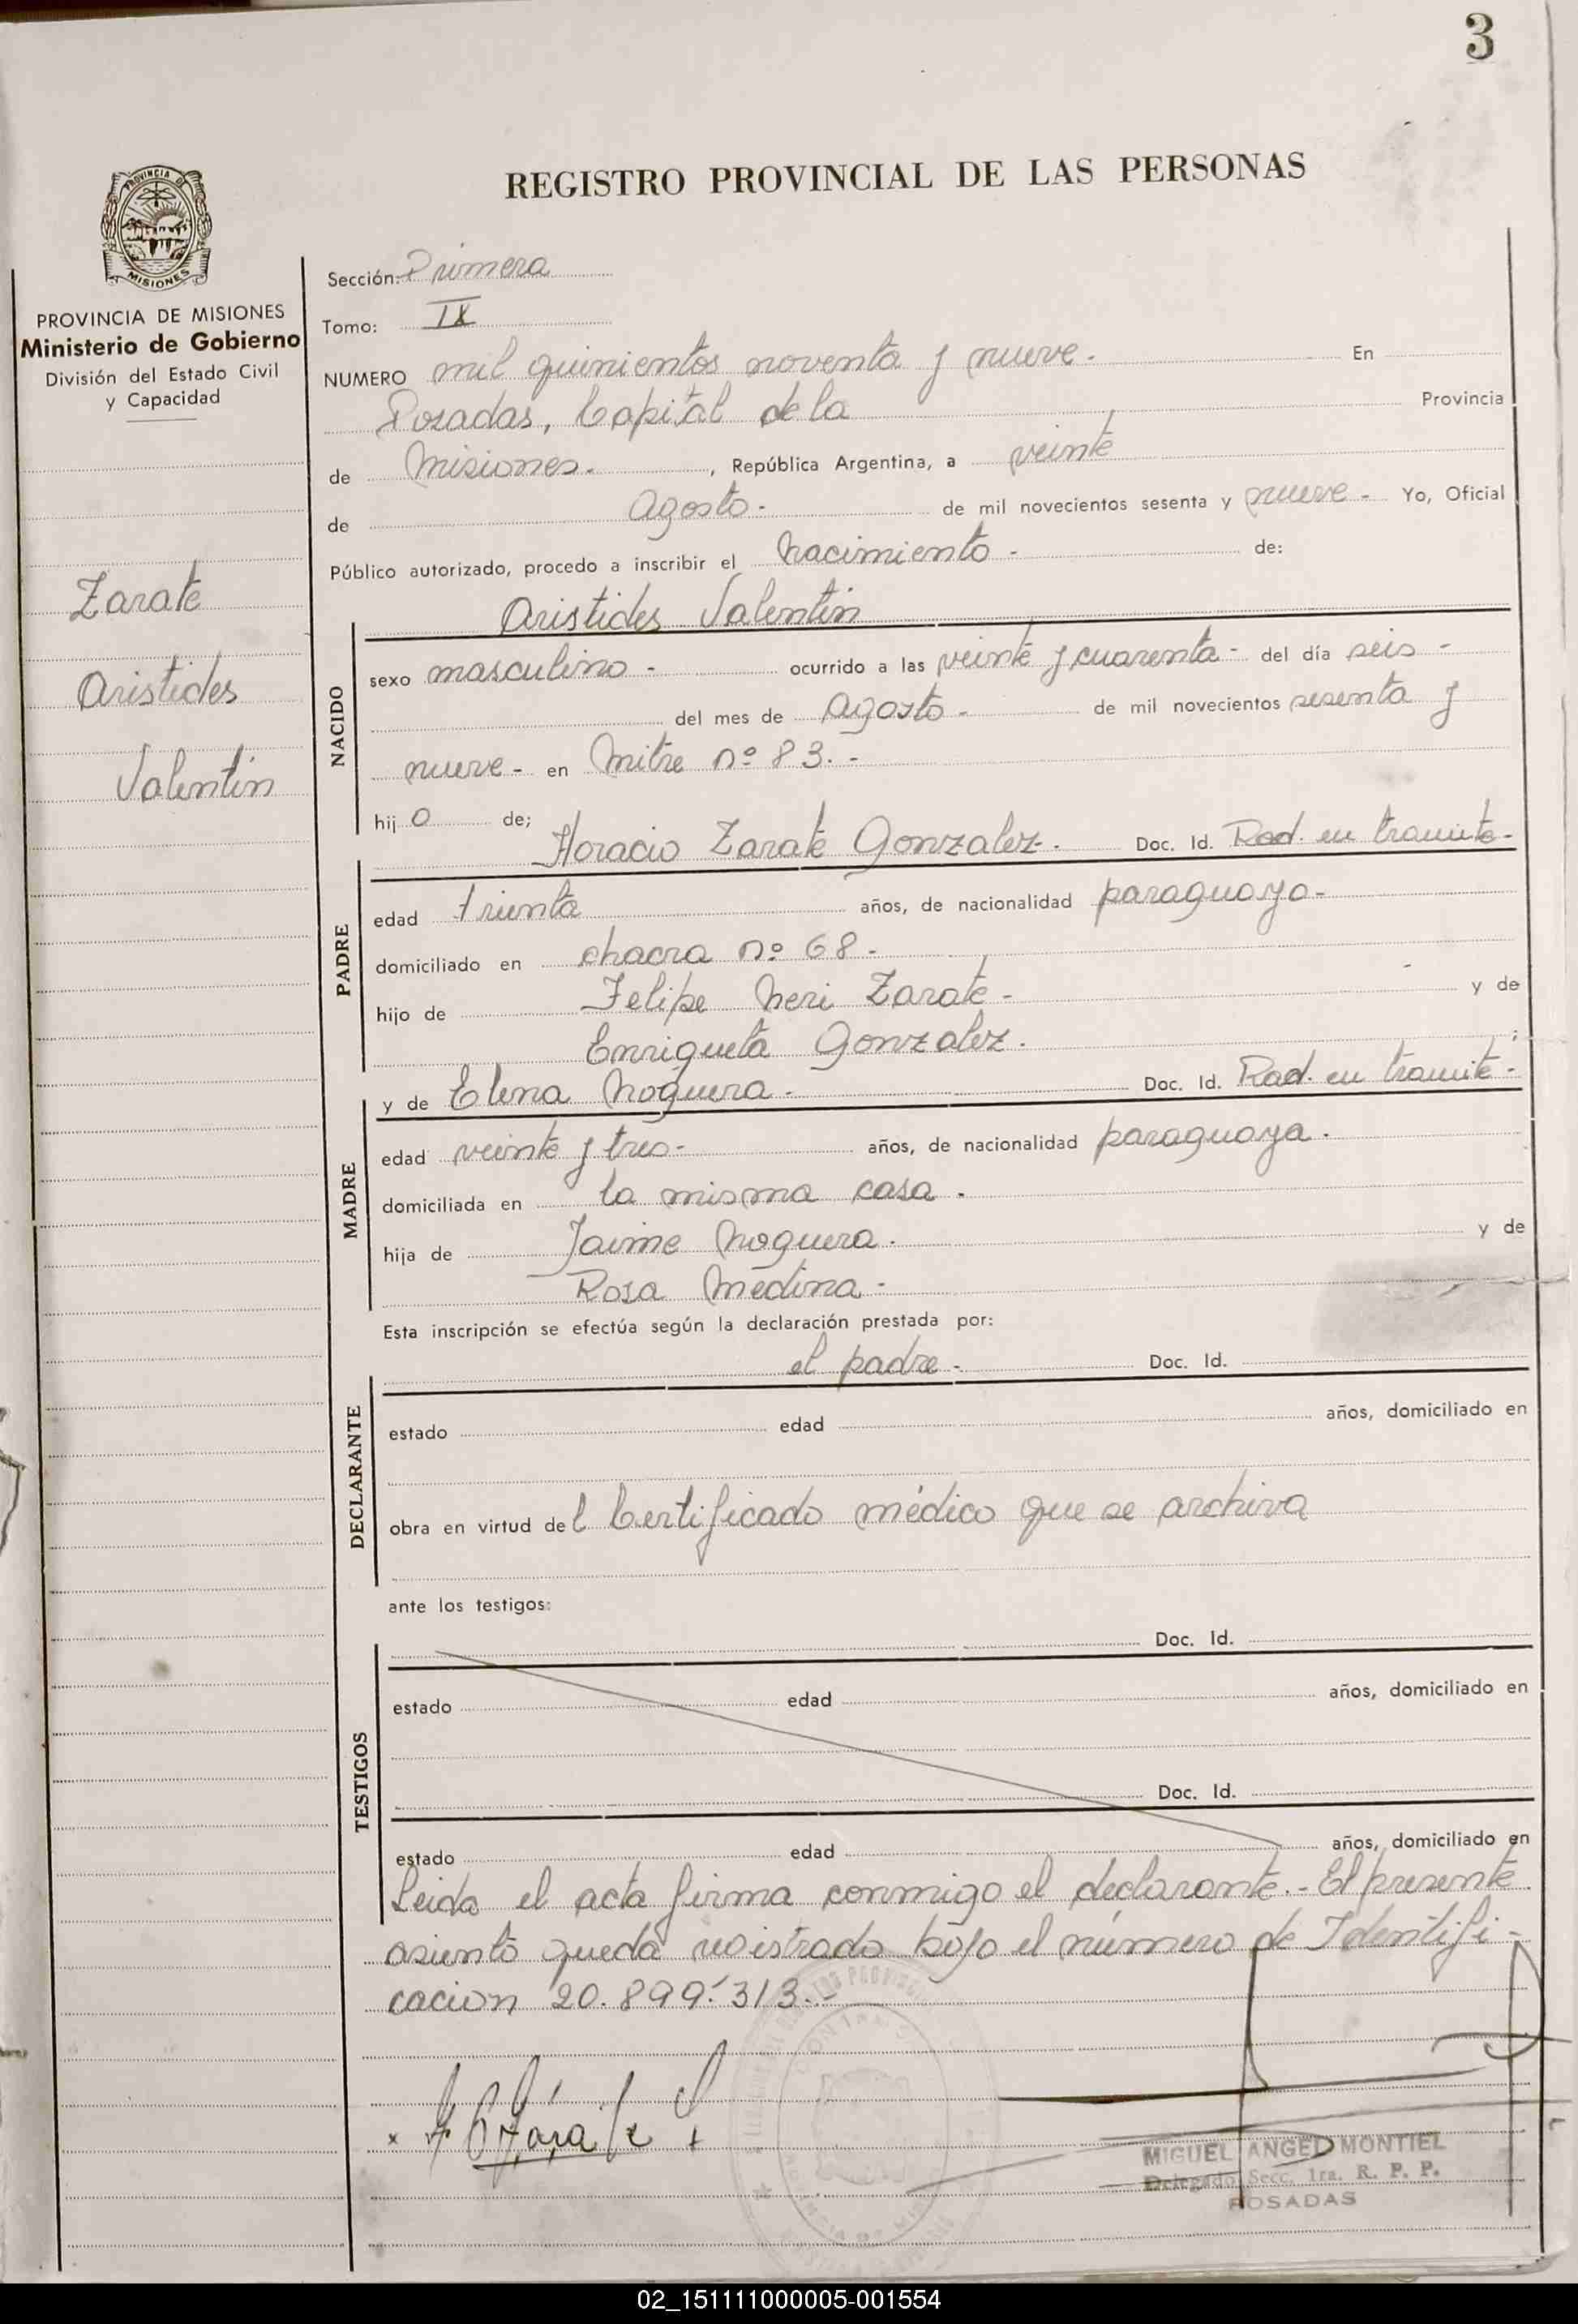 3
REGISTRO PROVINCIAL DE LAS PERSONAS
PROVINCIA DE
MISIONES
PROVINCIA DE MISIONES
Ministerio de Gobierno
División del Estado Civil
y Capacidad
Zarate
Aristides
Valentín
Sección: Primera
Tomo: IX
NUMERO mil quinientos noventa y nueve. - En
Posadas, Capital de la Provincia
de Misiones. , República Argentina, a veinte
de Agosto - de mil novecientos sesenta y nueve - Yo, Oficial
Público autorizado, procedo a inscribir el Nacimiento - de:
Aristides Valentín
NACIDO
sexo masculino - ocurrido a las veinte y cuarenta - del día seis -
del mes de Agosto - de mil novecientos sesenta y
nueve - en Mitre nº 83. -
hij o de;
Horacio Zarate Gonzalez. Doc. Id. Rad. en tramite -
PADRE
edad trienta años, de nacionalidad paraguayo -
domiciliado en chacra nº 68 -
hijo de Felipe Neri Zarate - y de
Enriqueta Gonzalez. ;
y de Elena Noguera - Doc. Id. Rad. en tramite -
MADRE
edad veinte y tres - años, de nacionalidad paraguaya .
domiciliada en la misma casa .
hija de Jaime Noguera . y de
Rosa Medina -
Esta inscripción se efectúa según la declaración prestada por:
el padre - Doc. Id.
DECLARANTE
estado edad años, domiciliado en
obra en virtud del Certificado médico que se archiva
ante los testigos:
Doc. Id.
TESTIGOS
estado edad años, domiciliado en
Doc. Id.
estado edad años, domiciliado en
Leida el acta firma conmigo el declarante. - El presente
asiento queda registrado bajo el número de Identifi -
cacion 20.899.313. -
MIGUEL ANGEL MONTIEL
Delegado Secc. 1ra. R. P. P.
POSADAS
02_151111000005-001554